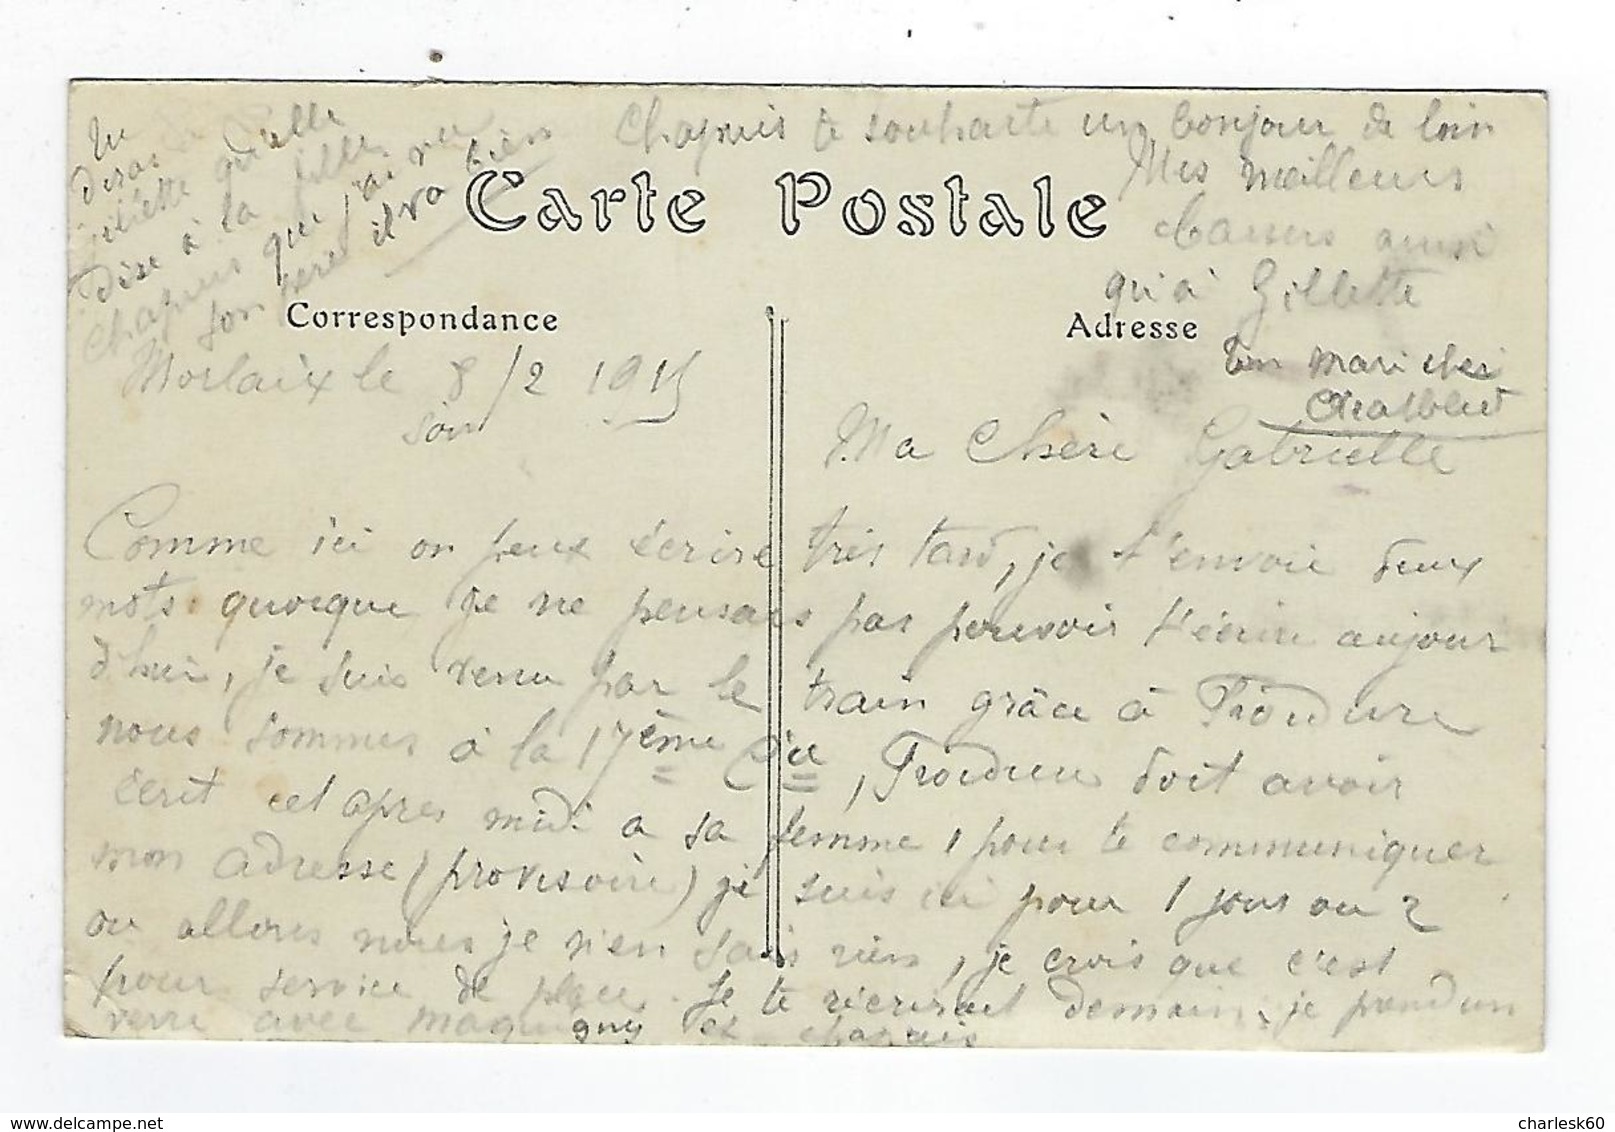 Tu
diras
Gillette qu'elle
dise à la fille
Chapuis que j'ai vu
son père il va bien
Chapuis te souhaite un bonjour de loin
Mes meilleurs
baisers ainsi
qu'à Gillette
Ton mari cheri
Carte Postale
Correspondance
Adresse
Morlaix le 8/2 1915
soir
Ma Chère Gabrielle
Comme ici on peux écrire très tard, je t'envoie deux
mots quoique je ne pensais pas pouvoir t'écrire aujour
d'hui, je suis venu par le train grâce à Froidure
nous sommes à la 17ème Cie, Froidure doit avoir
écrit cet apres midi a sa femme, pour te communiquer
mon adresse (provisoire) je suis ici pour 1 jours ou 2
ou allons nous je n'en sais rien, je crois que c'est
pour service de place. Je te récrirait demain, je prend un
verre avec et chapuis
charlesk60